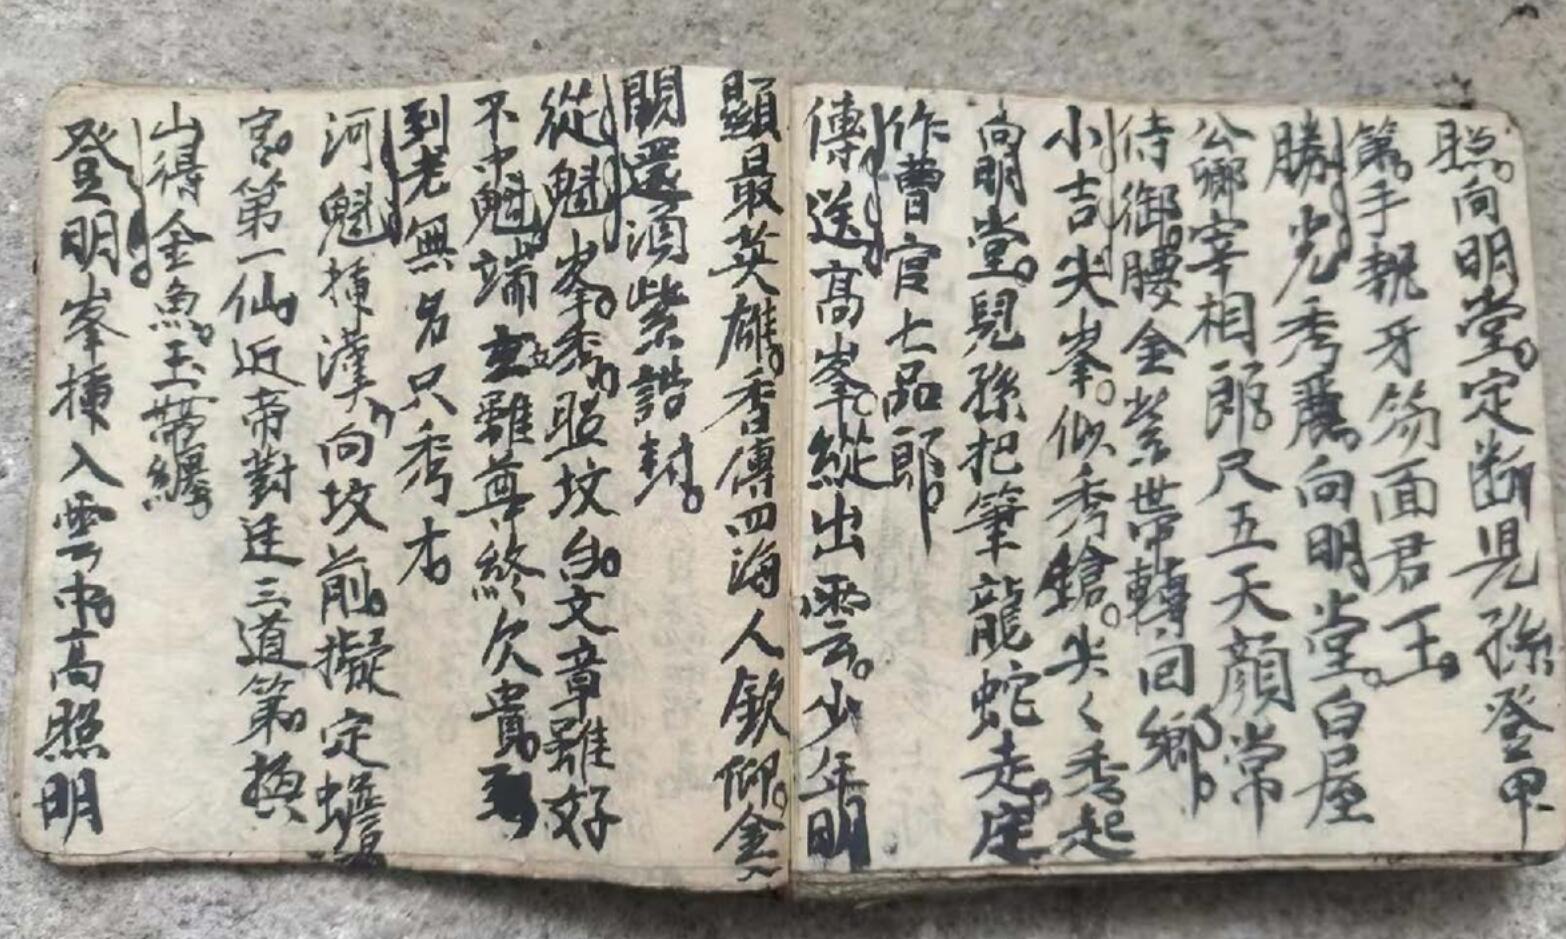 照。向明堂。定断児孫登甲
第。手執牙笏面君王。
勝光秀麗向明堂。白屋
公卿宰相郎。尺五天顔常
侍御。腰金紫帯轉回鄉。
小吉尖峯。似秀鎗。尖々秀起
向明堂。兒孫把筆龍蛇走。定
作曹官七品郎。
傳送高峯。縱出雲。少年明
顯最英雄。香傳四海人欽仰。金
閣還須紫誥封。
從魁峯秀照坟台。文章雖好
不中魁。端雖尊終欠貴。
到老無名只秀才
河魁揀漢向坟前。擬定蟾
宮。第一仙。近帝對廷三道第。
山得金魚。玉帶纏。
登明峯揀入雲中。高照明